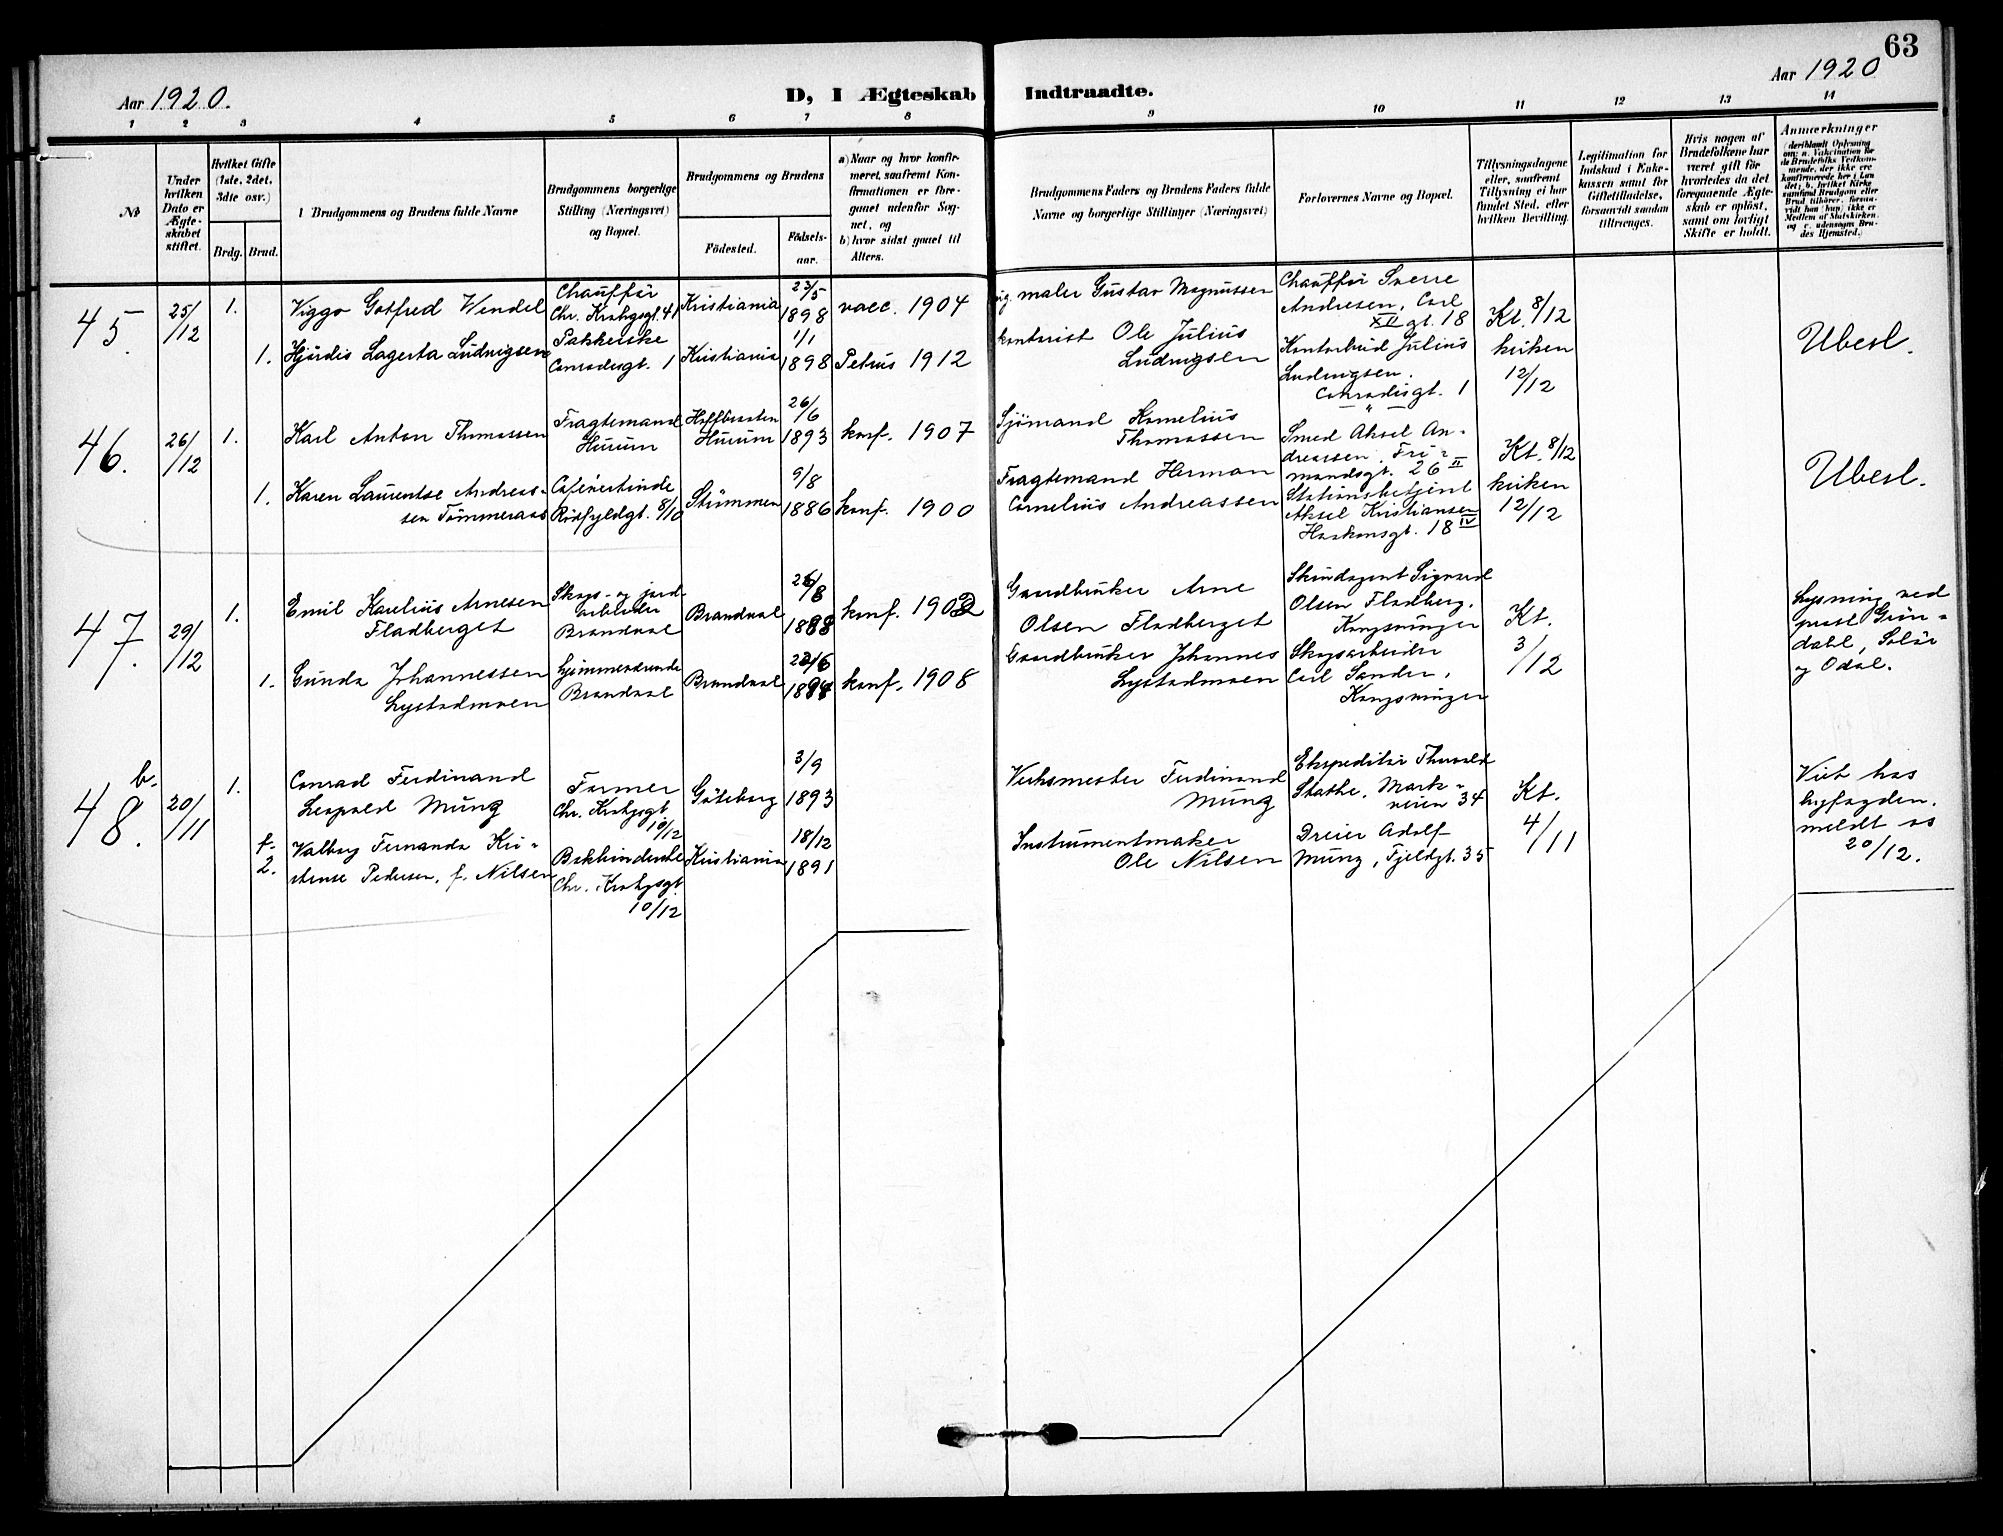 63
Aar 1920.
D, I Ægteskab Indtraadte.
Aar 1920
1 2 3 4 5 6 7 8 9 10 11 12 13 14
No
Under hvilken Dato er Ægteskabet stiftet.
Hvilket Gifte (1ste, 2det, 3dte osv.)
Brdg. Brud.
Brudgommens og Brudens fulde Navne
Brudgommens borgerlige Stilling (Næringsvei) og Bopæl.
Brudgommens og Brudens
Fødested.
Fødselsaar.
a) Naar og hvor konfirmeret, saafremt Konfirmationen er foregaaet udenfor Sognet, og
b) hvor sidst gaaet til Alters.
Brudgommens Faders og Brudens Faders fulde Navne og borgerlige Stillinger (Næringsvei)
Forlovernes Navne og Bopæl.
Tillysningsdagene eller, saafremt Tillysning ei har fundet Sted, efter hvilken Bevilling.
Legitimation for Indskud i Enkekassen samt for Giftetilladelse, forsaavidt saadan tiltrænges.
Hvis nogen af Brudefolkene har været gift før hvorledes da det foregaaende Ægteskab er opløst, samt om lovligt Skifte er holdt.
Anmærkninger
(deriblandt Oplysning om: a. Vakcination for de Brudefolks Vedkommende, der ikke ere konfirmerede her i Landet; b. hvilket Kirkesamfund Brudgom eller Brud tilhører, forsaavidt han (hun) ikke er Medlem af Statskirken. og c. udensogns Brudes Hjemsted.)
45. 25/12 1. Viggo Gotfred Wendel
Chauffør
Chr. Krohgsgt. 41
Kristiania 23/5 1898 vacc. 1904
maler Gustav Magnussen
Chauffør Sverre
Andresen, Carl
XII gt. 18
Kt. 8/12
kirken
12/12
Ubesl.
1. Hjördis Lagerta Ludvigsen
Pakkerske
Conradisgt. 1
Kristiania 1/1 1898 Petrus 1912
kontorist Ole Julius
Ludvigsen
Kontorbud Julius
Ludvigsen.
Conradisgt. 1
46. 26/12 1. Karl Anton Thomassen
Fragtemand
Hurum
Hurum 26/6 1893 konf. 1907
Sjömand Kornelius
Thomassen
Smed Aksel An-
dreassen, Fri-
mandsgt. 26 II
Kt. 8/12
kirken
12/12
Ubesl.
1. Karen Laurentse Andreas-
sen Tömmeraas
Cafévertinde
Rödfyldgt. 8/10
Strömmen 9/8 1886 konf. 1900
Fragtemand Herman
Cornelius Andreassen
Stationsbetjent
Aksel Kristiansen
Haakonsgt. 18 IV
47. 29/12 1. Emil Karelius Arnesen
Fladberget
Skogs- og jord-
arbeider
Brandval
Brandval 1888 konf. 1902
Gaardbruker Arne
Olsen Fladberget
Skindagent Sigvard
Olsen Fladberg.
Kongsvinger
Kt.
3/12
Lysning ved
prost Grön-
dahl, Solör
og Odal.
1. Gunda Johannessen
Lystadmoen
hjemmeværende
Brandval
Brandval 1894 konf. 1908
Gaardbruker Johannes
Lystadmoen
Skogsarbeider
Carl Sander,
Kongsvinger
48. b. 20/11 1. Conrad Ferdinand
Leopold Münz
Former
Chr. Krohgsgt.
10/12
Göteborg 3/9 1893
Verksmester Ferdinand
Münz
Ekspeditör Thorvald
Stathe, Mark-
veien 34
Kt.
4/11
Viet hos
byfogden.
meldt os
20/12.
f. 2. Valborg Fernanda Kri-
stense Pedersen, f. Nilsen
Bokbinderske
Chr. Krohgsgt.
10/12
Kristiania 18/12 1891
Instrumentmaker
Ole Nilsen
Dreier Adolf
Münz, Fjeldgt. 35